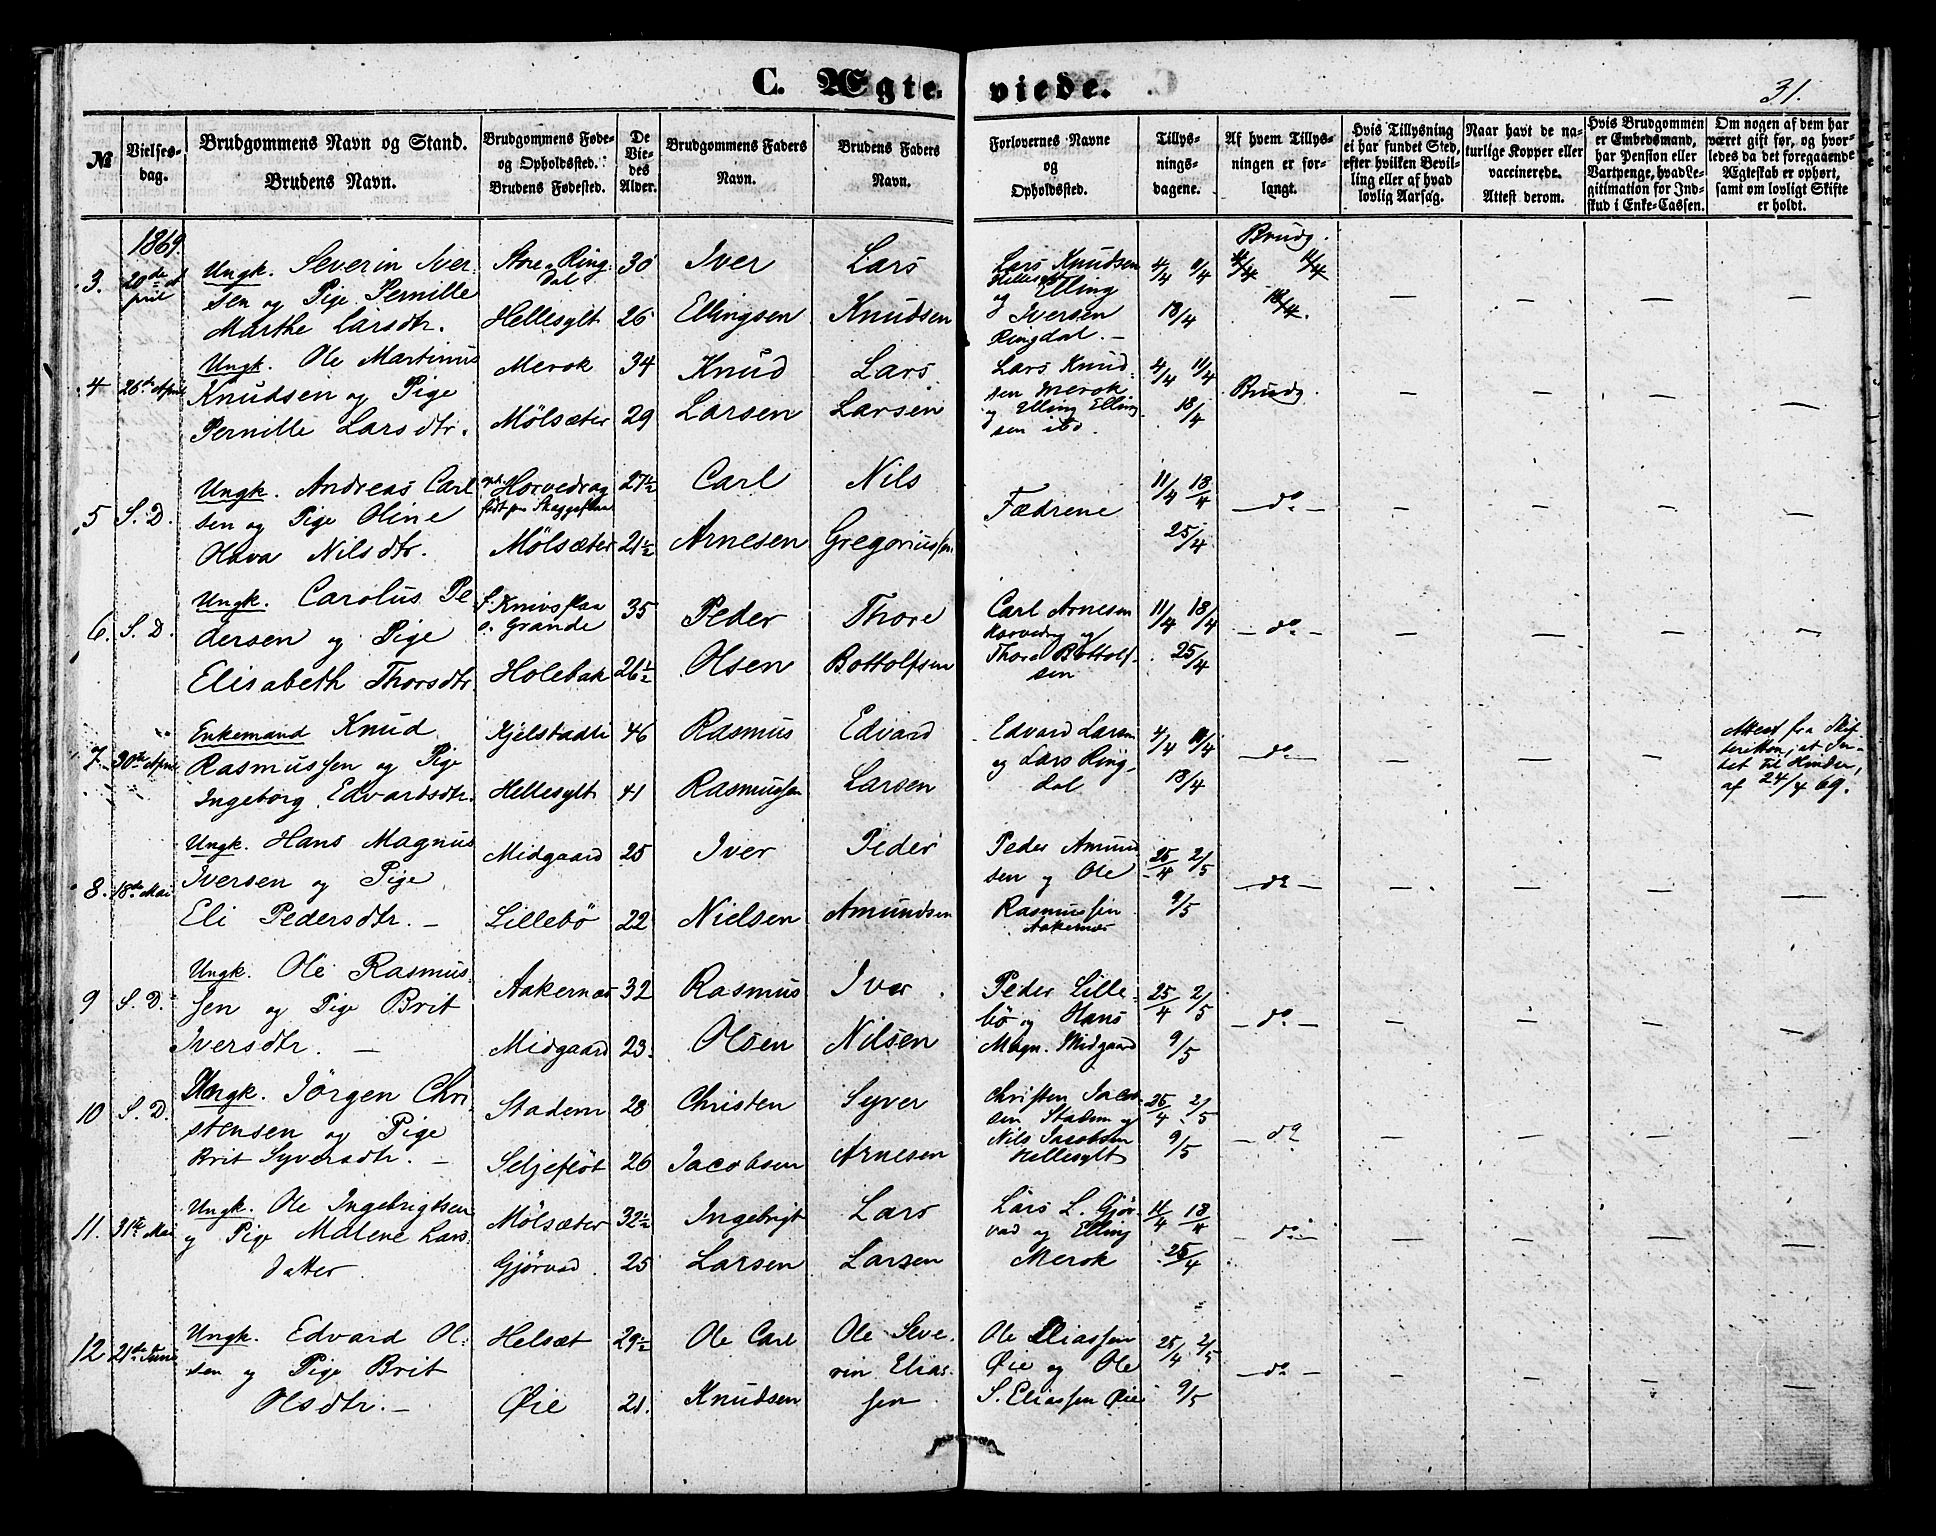 C. Ægte-
viede.
31.
№
Vielses-
dag.
Brudgommens Navn og Stand.
Brudens Navn.
Brudgommens Føde-
og Opholdssted.
Brudens Fødested.
De
Vie-
des
Alder.
Brudgommens Faders
Navn.
Brudens Faders
Navn.
Forlovernes Navne
og
Opholdssted.
Tillys-
nings-
dagene.
Af hvem Tillys-
ningen er for-
langt.
Hvis Tillysning
ei har fundet Sted,
efter hvilken Bevil-
ling eller af hvad
lovlig Aarsag.
Naar havt de na-
turlige Kopper eller
vaccinerede.
Attest derom.
Hvis Brudgommen
er Embedsmand,
har Pension eller
Vartpenge, hvad Le-
gitimation for Ind-
skud i Enke-Cassen.
Om nogen af dem har
været gift før, og hvor-
ledes da det foregaaende
Ægteskab er ophørt,
samt om lovligt Skifte
er holdt.
1869.
3. 20de A
pril
Ungk. Severin Iver-
sen og Pige Pernille
Marthe Larsdtr.
Store Ring-
dal 30
Hellesylt 26
Iver
Ellingsen
Lars
Knudsen
Lars Knudsen
Hellesylt
og Elling
Iversen
Ringdal. —
4/4 11/4
18/4
Brudg.
4/4 11/4
18/4.
— — — —
4 26de April
Ungk. Ole Martinus
Knudsen og Pige
Pernille Larsdtr.
Merok 34
Mölsæter 29
Knud
Larsen
Lars
Larsen
Lars Knud-
sen Merok
og Elling Elling
sen ibd.
4/4 11/4
18/4
Brudg.
— — — —
5 S. D.
Ungk. Andreas Carl
sen og Pige Oline
Olava Nilsdtr.
Horvedrag
født paa Skaggeflaa 27½
Mölsæter 21½
Carl
Arnesen
Nils
Gregoriussen
Fædrene
11/4 18/4
25/4
— do —
— — — —
6. S. D.
Ungk. Carolus Pe
dersen og Pige
Elisabeth Thorsdtr
f. Knivsflaa
o. Grande 35
Holebak 26½
Peder
Olsen
Thore
Bottolfsen
Carl Arnesen
Horvedrag og
Thore Bottolf-
sen
11/4 18/4
25/4
— do —
— — — —
7 30te April
Enkemand Knud
Rasmussen og Pige
Ingeborg Edvardsdtr.
Kjelstadli 46
Hellesylt 41
Rasmus
Rasmussen
Edvard
Larsen
Edvard Larsen
og Lars Ring-
dal
4/4 11/4
18/4
— do —
— — —
Attest fra Skif-
teretten, at In-
tet til Hinder,
af 24/4 69.
8. 18de Mai
Ungk. Hans Magnus
Iversen og Pige
Eli Pedersdtr. —
Midgaard 25
Lillebö 22
Iver
Nielsen
Peder
Amundsen
Peder Amund
sen og Ole
Rasmussen
Aakernæs
25/4 2/5
9/5
— do —
— — — —
9 S. D.
Ungk. Ole Rasmus
sen og Pige Brit
Iversdtr. —
Aakernæs 32
Midgaard 23.
Rasmus
Olsen
Iver
Nilsen
Peder Lille-
bö og Hans
Magn. Midgaard
25/4 2/5
9/5
— do —
— — — —
10 S. D.
Ungk. Jörgen Chri
stensen og Pige
Brit Syversdtr. —
Stadem 28
Seljeflöt 26
Christen
Jacobsen
Syver
Arnesen
Christen Jacob-
sen Stadem og
Nils Jacobsen
Hellesylt
25/4 2/5
9/5
— do
— — — —
11. 31te Mai
Ungk. Ole Ingebrigtsen
og Pige Malene Lars-
datter
Mölsæter 32½
Gjörvad 25
Ingebrigt
Larsen
Lars
Larsen
Lars L. Gjör-
vad og Elling
Merok
11/4 18/4
25/4
— do —
— — — —
12 21de Juni
Ungk. Edvard Ol-
sen og Pige Brit
Olsdtr. —
Helsæt 29½
Øie 21.
Ole Carl
Knudsen
Ole Seve-
rin Elias-
sen
Ole Eliassen
Øie og Ole
S. Eliassen Øie
25/4 2/5
9/5
— do —
— — — —